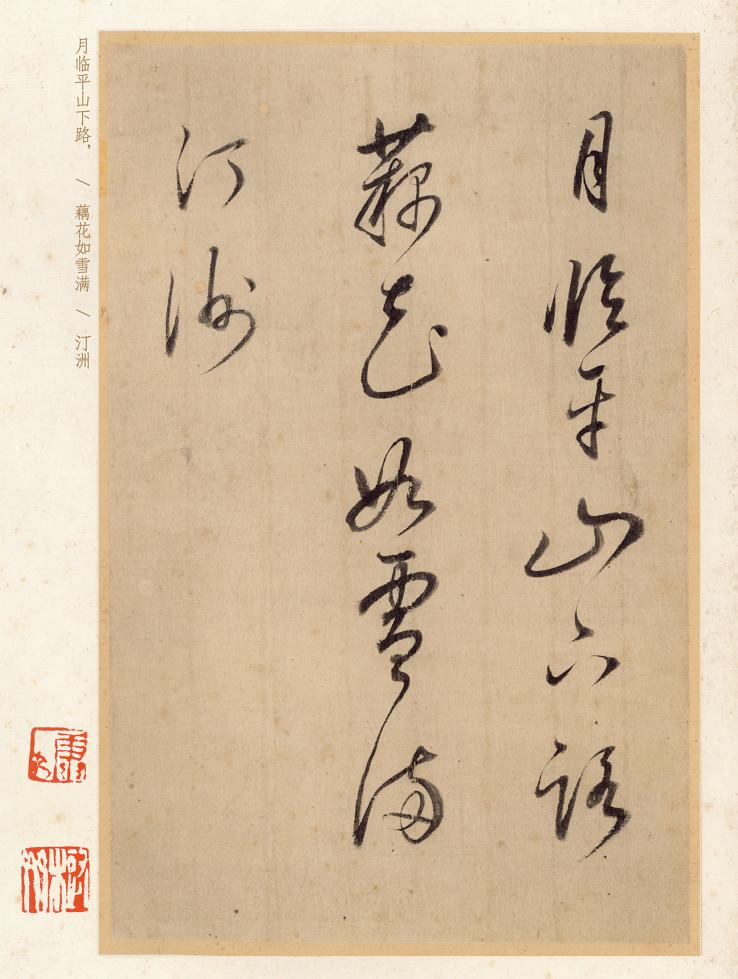 月临平山下路
藕花如雪满
汀洲
月临平山下路， \ 藕花如雪满 \ 汀洲